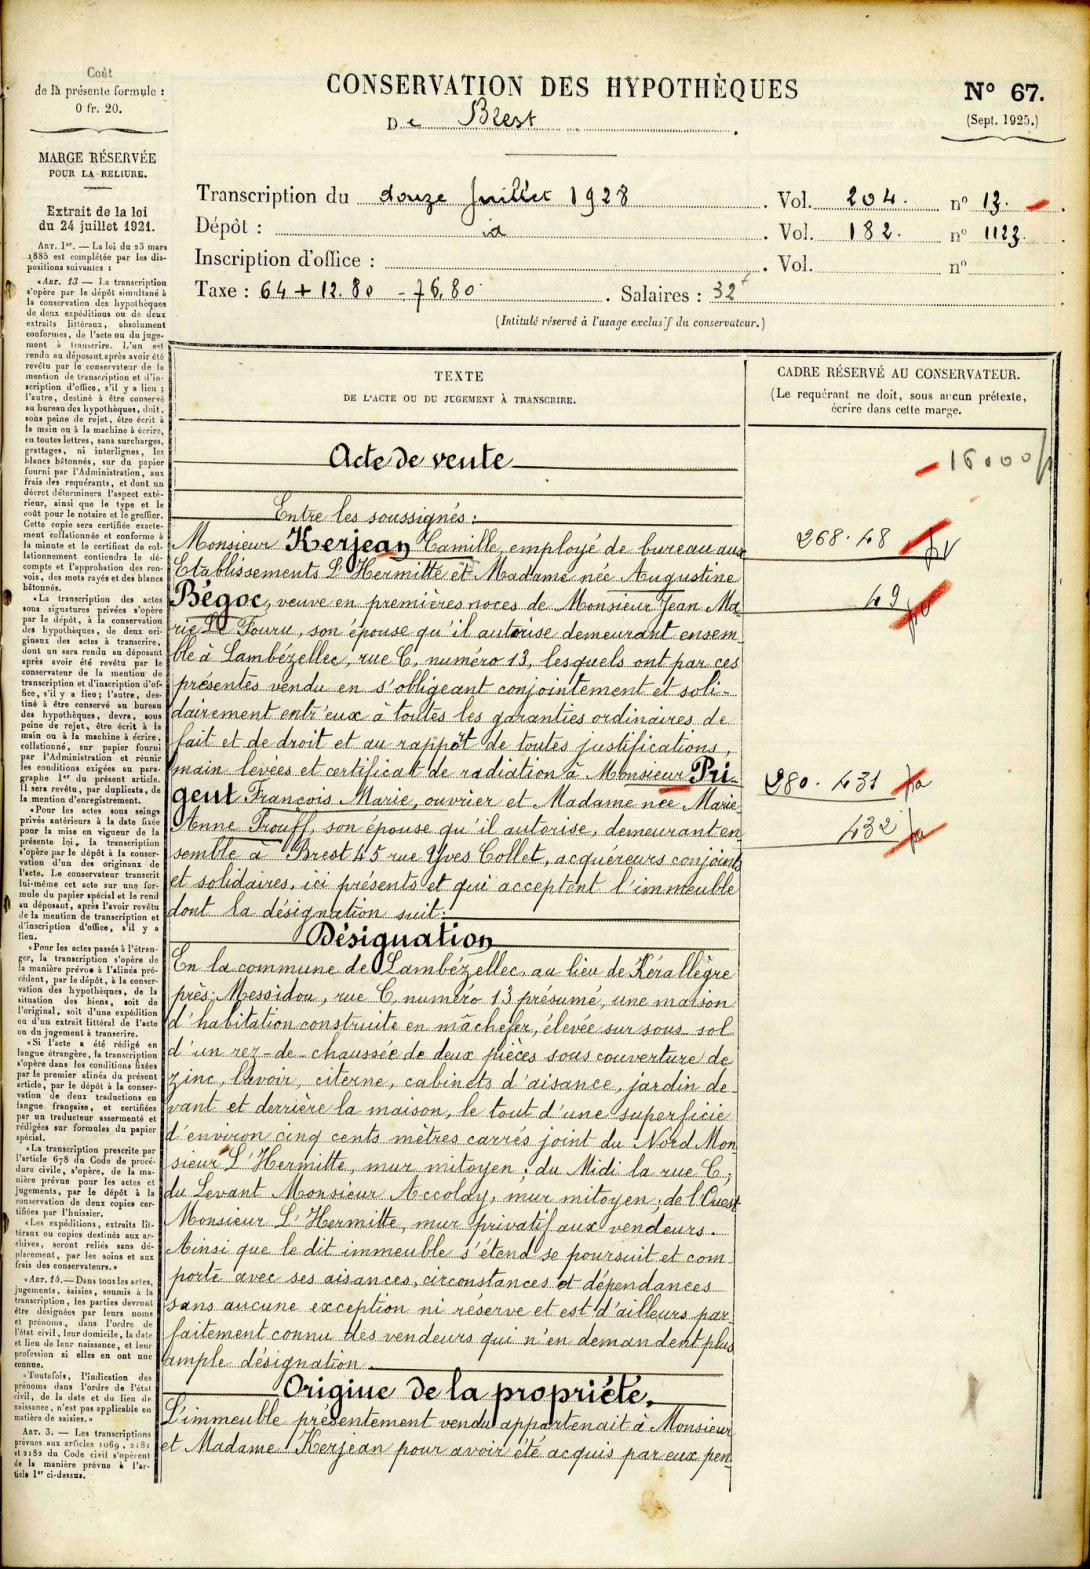 Coût
de la présente formule :
0 fr. 20.
MARGE RÉSERVÉE
POUR LA RELIURE.
Extrait de la loi
du 24 juillet 1921.
ART. 1er. — La loi du 23 mars
1885 est complétée par les dis-
positions suivantes :
«ART. 13 — La transcription
s'opère par le dépôt simultané à
la conservation des hypothèques
de deux expéditions ou de deux
extraits littéraux, absolument
conformes, de l'acte ou du juge-
ment à transcrire. L'un est
rendu au déposant après avoir été
revêtu par le conservateur de la
mention de transcription et d'in-
scription d'office, s'il y a lieu ;
l'autre, destiné à être conservé
au bureau des hypothèques, doit,
sous peine de rejet, être écrit à
la main ou à la machine à écrire,
en toutes lettres, sans surcharges,
grattages, ni interlignes, les
blancs bâtonnés, sur du papier
fourni par l'Administration, aux
frais des requérants, et dont un
décret déterminera l'aspect exté-
rieur, ainsi que le type et le
coût pour le notaire et le greffier.
Cette copie sera certifiée exacte-
ment collationnée et conforme à
la minute et le certificat de col-
lationnement contiendra le dé-
compte et l'approbation des ren-
vois, des mots rayés et des blancs
bâtonnés.
«La transcription des actes
sous signatures privées s'opère
par le dépôt, à la conservation
des hypothèques, de deux ori-
ginaux des actes à transcrire,
dont un sera rendu au déposant
après avoir été revêtu par le
conservateur de la mention de
transcription et d'inscription d'of-
fice, s'il y a lieu ; l'autre, des-
tiné à être conservé au bureau
des hypothèques, devra, sous
peine de rejet, être écrit à la
main ou à la machine à écrire,
collationné, sur papier fourni
par l'Administration et réunir
les conditions exigées au para-
graphe 1er du présent article.
Il sera revêtu, par duplicata, de
la mention d'enregistrement.
«Pour les actes sous seings
privés antérieurs à la date fixée
pour la mise en vigueur de la
présente loi, la transcription
s'opère par le dépôt à la conser-
vation d'un des originaux de
l'acte. Le conservateur transcrit
lui-même cet acte sur une for-
mule du papier spécial et le rend
au déposant, après l'avoir revêtu
de la mention de transcription et
d'inscription d'office, s'il y a
lieu.
«Pour les actes passés à l'étran-
ger, la transcription s'opère de
la manière prévue à l'alinéa pré-
cédent, par le dépôt, à la conser-
vation des hypothèques, de la
situation des biens, soit de
l'original, soit d'une expédition
ou d'un extrait littéral de l'acte
ou du jugement à transcrire.
«Si l'acte a été rédigé en
langue étrangère, la transcription
s'opère dans les conditions fixées
par le premier alinéa du présent
article, par le dépôt à la conser-
vation de deux traductions en
langue française, et certifiées
par un traducteur assermenté et
rédigées sur formules du papier
spécial.
«La transcription prescrite par
l'article 678 du Code de procé-
dure civile, s'opère, de la ma-
nière prévue pour les actes et
jugements, par le dépôt à la
conservation de deux copies cer-
tifiées par l'huissier.
«Les expéditions, extraits lit-
téraux ou copies destinés aux ar-
chives, seront reliés sans dé-
placement, par les soins et aux
frais des conservateurs.»
«ART. 14.—Dans tous les actes,
jugements, saisies, soumis à la
transcription, les parties devront
être désignées par leurs noms
et prénoms, dans l'ordre de
l'état civil, leur domicile, la date
et lieu de leur naissance, et leur
profession si elles en ont une
connue.
«Toutefois, l'indication des
prénoms dans l'ordre de l'état
civil, de la date et du lieu de
naissance, n'est pas applicable en
matière de saisies.»
ART. 3. — Les transcriptions
prévues aux articles 1069, 2181
et 2182 du Code civil s'opèrent
de la manière prévue à l'ar-
ticle 1er ci-dessus.
CONSERVATION DES HYPOTHÈQUES
De Brest
N° 67.
(Sept. 1925.)
Transcription du douze Juillet 1928. Vol. 204. n° 13.
Dépôt : id. Vol. 182. n° 1123.
Inscription d'office : . Vol. n°
Taxe : 64 + 12.80 - 76.80. Salaires : 32 f
(Intitulé réservé à l'usage exclusif du conservateur.)
TEXTE
DE L'ACTE OU DU JUGEMENT À TRANSCRIRE.
CADRE RÉSERVÉ AU CONSERVATEUR.
(Le requérant ne doit, sous aucun prétexte,
écrire dans cette marge.
Acte de vente
Entre les soussignés :
Monsieur Kerjean Camille, employé de bureau aux
Etablissements L'Hermitte et Madame née Augustine
Bégoc, veuve en premières noces de Monsieur Jean Ma
rie Le Fouru, son épouse qu'il autorise demeurant ensem
ble à Lambézellec, rue C, numéro 13, lesquels ont par ces
présentes vendu en s'obligeant conjointement et soli-
dairement entr'eux à toutes les garanties ordinaires de
fait et de droit et au rapport de toutes justifications,
main levées et certificat de radiation à Monsieur Pri-
gent François Marie, ouvrier et Madame née Marie
Anne Trouff, son épouse qu'il autorise, demeurant en
semble à Brest 45 rue Yves Collet, acquéreurs conjoints
et solidaires, ici présents et qui acceptent l'immeuble
dont la désignation suit :
Désignation
En la commune de Lambézellec, au lieu de Kérallègre
près Messidou, rue C, numéro 13 présumé, une maison
d'habitation construite en mâchefer, élevée sur sous-sol
d'un rez-de-chaussée de deux pièces sous couverture de
zinc, lavoir, citerne, cabinets d'aisance, jardin de
vant et derrière la maison, le tout d'une superficie
d'environ cinq cents mètres carrés joint du Nord Mon
sieur L'Hermitte, mur mitoyen ; du Midi la rue C ;
du Levant Monsieur Accolay, mur mitoyen ; de l'Ouest
Monsieur L'Hermitte, mur privatif aux vendeurs.
Ainsi que le dit immeuble s'étend se poursuit et com
porte avec ses aisances, circonstances et dépendances
sans aucune exception ni réserve et est d'ailleurs par-
faitement connu des vendeurs qui n'en demandent plus
ample désignation.
Origine de la propriété.
L'immeuble présentement vendu appartenait à Monsieur
et Madame Kerjean pour avoir été acquis par eux pen
16000 f
268.48
49
280.431
432